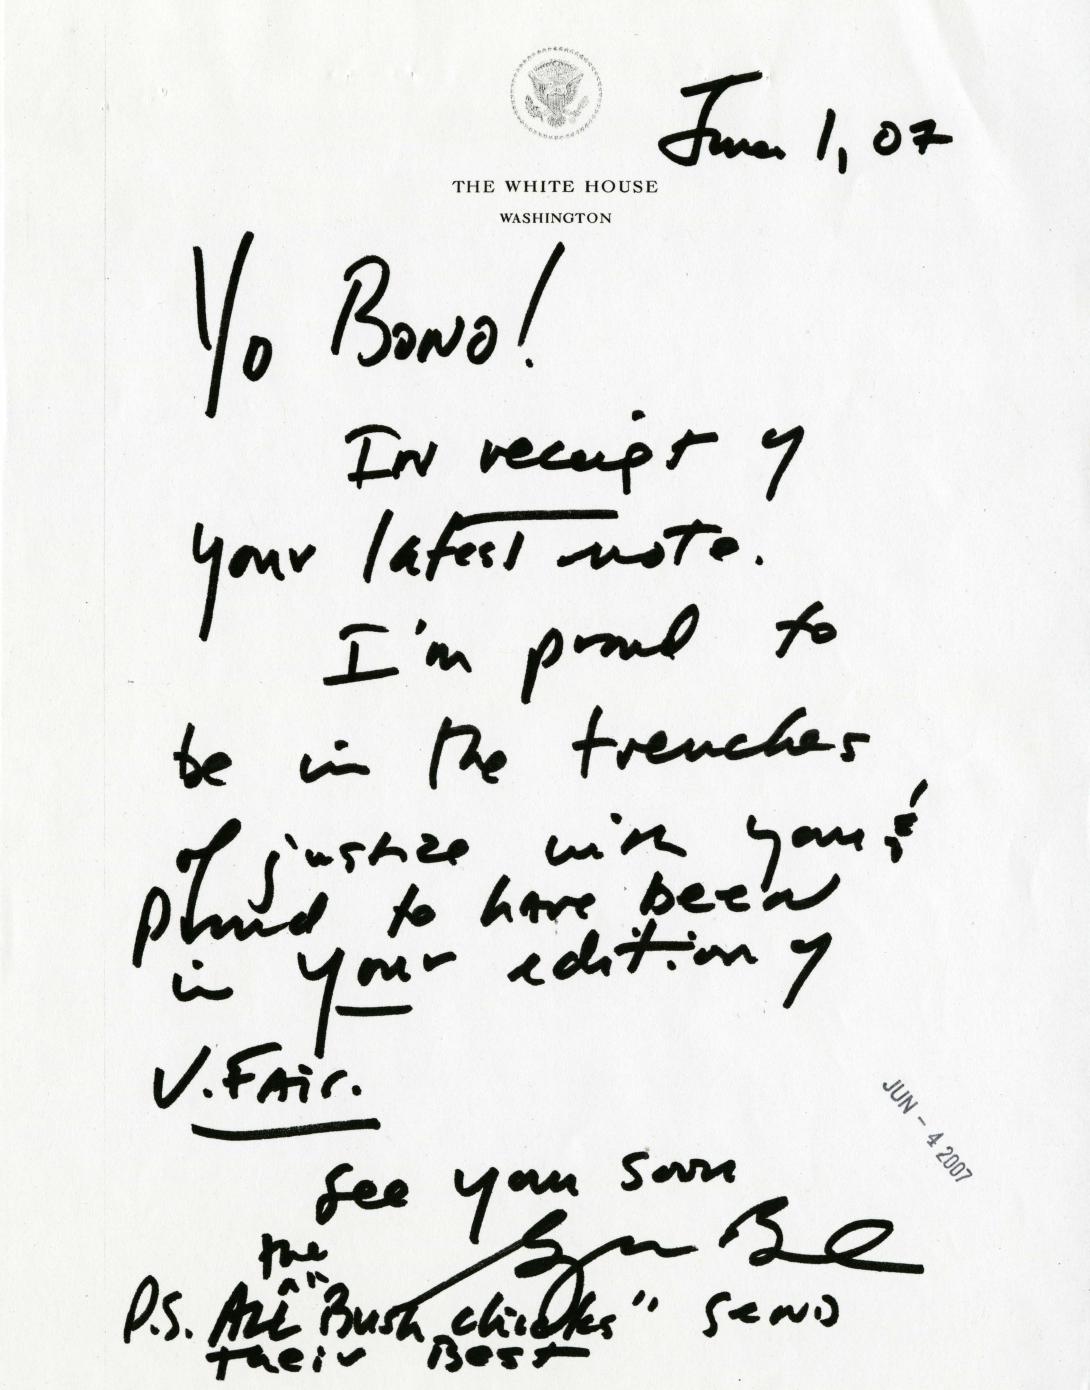 June 1, 07
THE WHITE HOUSE
WASHINGTON
Yo Bono!
In receipt of
your latest note.
I'm proud to
be in the trenches
of justice with you &
proud to have been
in your edition of
V. Fair.
JUN - 4 2007
See you soon
George Bush
the
P.S. All "Bush chicks" send
their Best